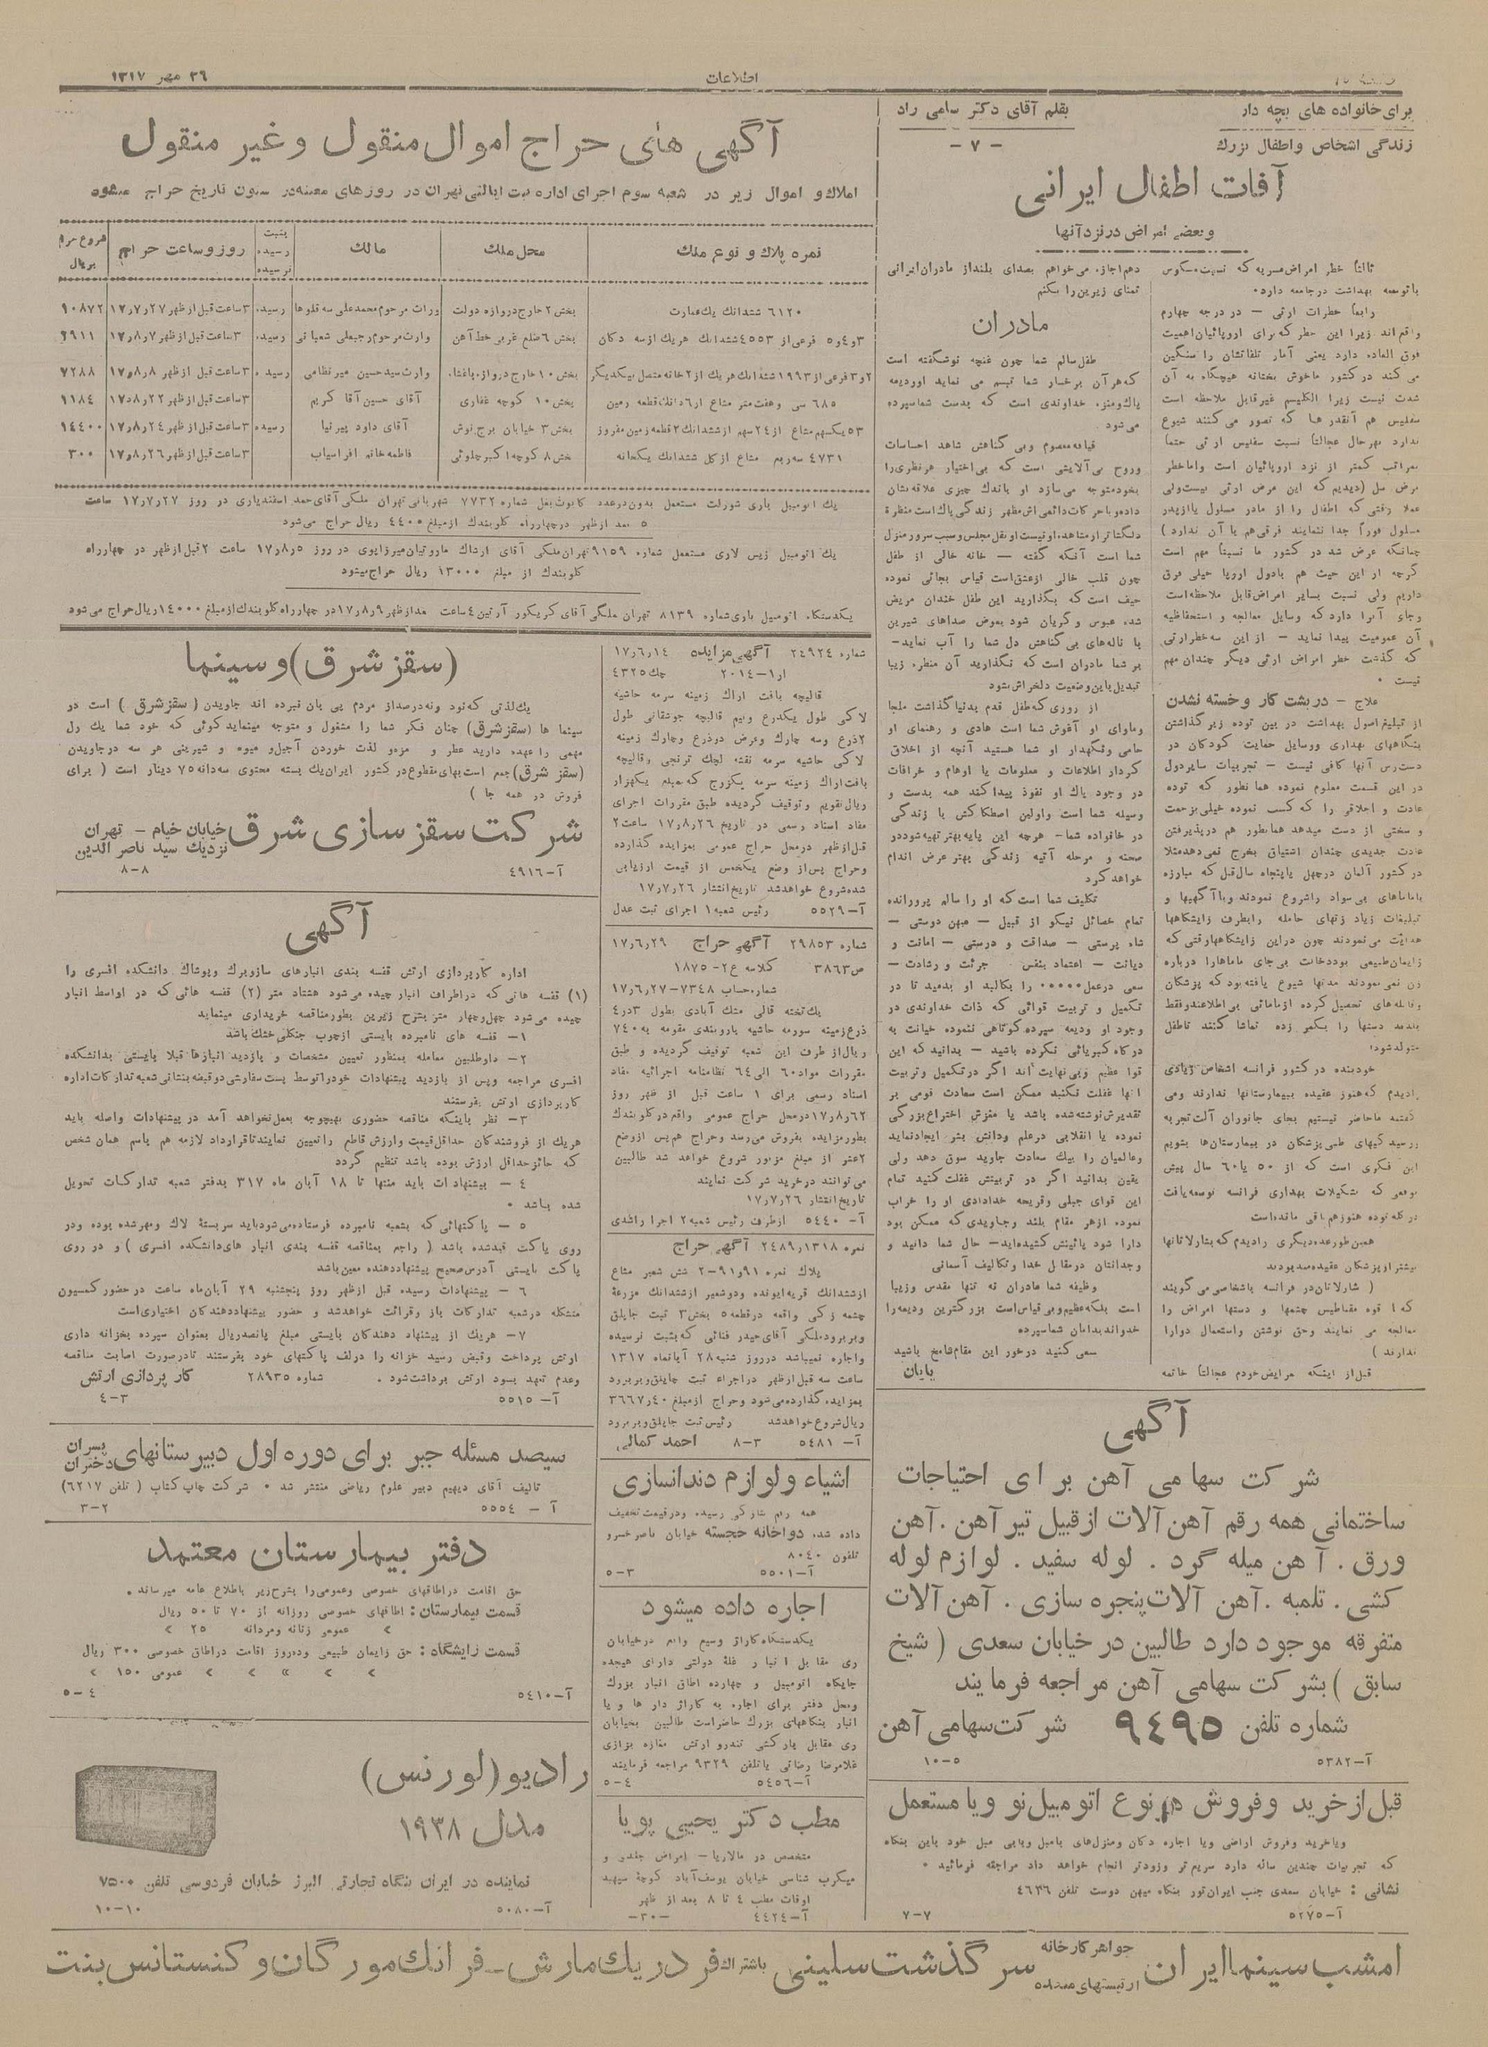 اطلاعات
۲۶ مهر ۱۳۱۷
برای خانواده های بچه دار
زندگی اشخاص و اطفال بزرك
بقلم آقای دکتر سامی راد
- ۷ -
آفات اطفال ایرانی
و بعضی امراض در نزد آنها
ثالثاً خطر امراض مسریه که نسبت معکوس
با توسعه بهداشت در جامعه دارد.
رابعاً خطرات ارثی - در درجه چهارم
واقع‌اند زیرا این خطر که برای اروپائیان اهمیت
فوق العاده دارد یعنی آمار تلفاتشان را سنگین
می کند در کشور ما خوش بختانه هیچگاه به آن
شدت نیست زیرا الکلیسم غیرقابل ملاحظه است
سفلیس هم آنقدر ها که تصور می کنند شیوع
ندارد بهر حال عجالتاً نسبت سفلیس ارثی حتماً
بمراتب کمتر از نزد اروپائیان است واما خطر
مرض سل (دیدیم که این مرض ارثی نیست ولی
عملا وقتی که اطفال را از مادر مسلول یا از پدر
مسلول فوراً جدا ننمایند فرقی هم با آن ندارد)
چنانکه عرض شد در کشور ما نسبتاً مهم است
گرچه از این حیث هم با دول اروپا خیلی فرق
داریم ولی نسبت بسایر امراض قابل ملاحظه است
وجای آنرا دارد که وسایل معالجه و استحفاظیه
آن عمومیت پیدا نماید - از این سه خطر ارثی
که گذشت خطر امراض ارثی دیگر چندان مهم
نیست .
علاج - در پشت کار و خسته نشدن
از تبلیغ اصول بهداشت در بین توده زیر گذاشتن
بنگاههای بهداری و وسایل حمایت کودکان در
دسترس آنها کافی نیست - تجربیات سایر دول
در این قسمت معلوم نموده همانطور که توده
عادت و اخلاقی را که کسب نموده خیلی بزحمت
و سختی از دست میدهد همانطور هم در پذیرفتن
عادت جدیدی چندان اشتیاق بخرج نمی دهد مثلا
در کشور آلمان در چهل یا پنجاه سال قبل که مبارزه
با ماماهای بی سواد را شروع نمودند و با آگهیها و
تبلیغات زیاد زنهای حامله را بطرف زایشگاهها
هدایت می نمودند چون در این زایشگاهها رقتی که
زایمان طبیعی بود دخالت بی جای ماماها را درباره
زن نمی نمودند مدتها شیوع یافته بود که پزشکان
و قابله های تحصیل کرده از مامائی بی اطلاعند و فقط
بلدند دستها را بکمر زده تماشا کنند تا طفل
متولد شود؛
خود بنده در کشور فرانسه اشخاص زیادی
رادیدم که هنوز عقیده ببیمارستانها ندارند و می
گفتند ما حاضر نیستیم بجای جانوران آلت تجربه
و رسیدگیهای طبی پزشکان در بیمارستان‌ها بشویم
این فکری است که از ۵۰ یا ۶۰ سال پیش
موقعی که تشکیلات بهداری فرانسه توسعه یافت
در کله توده هنوز هم باقی مانده است
همین طور عده دیگری را دیدم که بشارلاتانها
بیشتر از پزشکان عقیده مند بودند
( شارلاتان در فرانسه باشخاصی می گویند
که با قوه مغناطیس چشمها و دستها امراض را
معالجه می نمایند وحق نوشتن و استعمال دوا را
ندارند )
قبل از اینکه عرایض خودم عجالتاً خاتمه
دهم اجازه می خواهم بصدای بلند از مادران ایرانی
تمنای زیرین را بکنم
مادران
طفل سالم شما چون غنچه نوشگفته است
که هر آن برخسار شما تبسم می نماید او ودیعه
پاك و منزه خداوندی است که بدست شما سپرده
می شود
قیافه معصوم و بی گناهش شاهد احساسات
و روح بی آلایشی است که بی اختیار هر نظری را
بخود متوجه می سازد او باندك چیزی علاقه نشان
داده و با حرکات دائمی اش مظهر زندگی پاك است منظره
دلگشا تر از مشاهده او نیست او نقل مجلس و سبب سرور منزل
شما است آنکه گفته - خانه خالی از طفل
چون قلب خالی از عشق است قیاس بجائی نموده
حیف است که بگذارید این طفل خندان مریض
شده عبوس و گریان شود بعوض صداهای شیرین
با ناله های بی گناهش دل شما را آب نماید-
بر شما مادران است که نگذارید آن منظره زیبا
تبدیل باین وضعیت دلخراش بشود
از روزی که طفل قدم بدنیا گذاشت ملجا
وماوای او آغوش شما است هادی و رهنمای او
حامی و نگهدار او شما هستید آنچه از اخلاق
کردار اطلاعات و معلومات یا اوهام و خرافات
در وجود پاك او نفوذ پیدا کند همه بدست و
وسیله شما است و اولین اصطکاکش با زندگی
در خانواده شما- هرچه این پایه بهتر تهیه شود در
صحنه و مرحله آتیه زندگی بهتر عرض اندام
خواهد کرد
تکلیف شما است که او را سالم پرورانده
تمام خصائل نیکو از قبیل - میهن دوستی -
شاه پرستی - صداقت و درستی - امانت و
دیانت - اعتماد بنفس - جرئت و رشادت -
سعی در عمل ..... را بکالبد او بدمید تا در
تکمیل و تربیت قوائی که ذات خداوندی در
وجود او ودیعه سپرده کوتاهی ننموده خیانت به
درگاه کبریائی نکرده باشید - بدانید که این
قوا عظیم و بی نهایت اند اگر در تکمیل و تربیت
آنها غفلت نکنید ممکن است سعادت قومی بر
تقدیرش نوشته شده باشد یا مغزش اختراع بزرگی
نموده یا انقلابی در علم و دانش بشر ایجاد نماید
و عالمیان را بیك سعادت جاوید سوق دهد ولی
یقین بدانید اگر در تربیتش غفلت کنید تمام
این قوای جبلی و قریحه خدادادی او را خراب
نموده از هر مقام بلند و جاویدی که ممکن بود
دارا شود پائینش کشیده‌اید- حال شما دانید و
وجدانتان در مقابل خدا و تکالیف آسمانی
وظیفه شما مادران نه تنها مقدس و زیبا
است بلکه عظیم و بی قیاس است بزرگترین ودیعه را
خداوند بدامان شما سپرده
سعی کنید در خور این مقام شامخ باشید
پایان
آگهی های حراج اموال منقول و غیر منقول
املاك و اموال زیر در شعبه سوم اجرای اداره ثبت ایالتی تهران در روز های معینه در ستون تاریخ حراج میشود
نمره پلاك و نوع ملك | محل ملك | مالك | بثبت رسیده نرسیده | روز و ساعت حراج | شروع حراج بریال
۶۱۲۰ ششدانك یك عمارت | بخش ۲ خارج دروازه دولت | وراث مرحوم محمد علی سه قلوها | رسیده | ۳ ساعت قبل از ظهر ۱۷٫۷٫۲۷ | ۱۰۸۷۲
۳ و ۴ و ۵ فرعی از ۴۵۵۳ ششدانك هریك از سه دکان | بخش ۶ ضلع غربی خط آهن | وارث مرحوم رجبعلی شعبانی | رسیده | ۳ ساعت قبل از ظهر ۱۷٫۸٫۷ | ۲۹۱۱
۲ و ۳ فرعی از ۱۹۹۳ ششدانك هریك از ۲ خانه متصل بیکدیگر | بخش ۱۰ خارج دروازه باغشاه | وارث سید حسین میر نظامی | رسیده | ۳ ساعت قبل از ظهر ۱۷٫۸٫۸ | ۷۲۸۸
۶۸۵ سی و هفت متر مشاع از ۶ دانك قطعه زمین | بخش ۱۰ کوچه غفاری | آقای حسین آقا کریم | ۳ ساعت قبل از ظهر ۱۷٫۸٫۲۲ | ۱۱۸۴
۵۳ یکسهم مشاع از ۲۴ سهم از ششدانك ۲ قطعه زمین مفروز | بخش ۳ خیابان برج نوش | آقای داود پیرنیا | رسیده | ۳ ساعت قبل از ظهر ۱۷٫۸٫۲۴ | ۱۴۴۰۰
۴۷۳۱ سه ربع مشاع از کل ششدانك یکخانه | بخش ۸ کوچه اکبر چلوئی | فاطمه خانم افراسیاب | ۳ ساعت قبل از ظهر ۱۷٫۸٫۲۶ | ۳۰۰
یك اتومبیل باری شورلت مستعمل بدون دو عدد کائوت بغل شماره ۷۷۳۲ شهربانی تهران ملکی آقای حمد اسفندیاری در روز ۱۷٫۷٫۲۷ ساعت
۵ بعد از ظهر در چهارراه کلوبندك از مبلغ ۴۴۰۰ ریال حراج می‌شود
یك اتومبیل زیس لاری مستعمل شماره ۹۱۵۹ تهران ملکی آقای ارداك ماروتیان میرزایوی در روز ۱۷٫۸٫۵ ساعت ۲ قبل از ظهر در چهار راه
کلوبندك از مبلغ ۱۳۰۰۰ ریال حراج میشود
یکدستگاه اتومبیل باری شماره ۸۱۳۹ تهران ملکی آقای کریکور آرتین ۴ ساعت بعد از ظهر ۱۷٫۸٫۹ در چهار راه کلوبندك از مبلغ ۱۴۰۰۰ ریال حراج می شود
شماره ۲۴۹۲۴ آگهی مزایده ۱۷٫۶٫۱۴
۲۰۱۴-۱ چك ۴۳۲۵
قالیچه بافت اراك زمینه سرمه حاشیه
لاکی طول یکذرع و نیم قالیچه جوشقانی طول
۲ ذرع و سه چارك و عرض دو ذرع و چارك زمینه
لاکی حاشیه سرمه نقشه لچك ترنجی و قالیچه
بافت اراك زمینه سرمه یکزوج که بمبلغ یکهزار
ریال تقویم و توقیف گردیده طبق مقررات اجرای
مفاد اسناد رسمی در تاریخ ۱۷٫۸٫۲۶ ساعت ۲
قبل از ظهر در محل حراج عمومی بمزایده گذارده
و حراج پس از وضع یکخمس از قیمت ارزیابی
شده شروع خواهد شد تاریخ انتشار ۱۷٫۷٫۲۶
آ-۵۵۲۹ رئیس شعبه ۱ اجرای ثبت عدل
شماره ۲۹۸۵۳ آگهی حراج ۱۷٫۶٫۲۹
ص ۳۸۶۳ کلاسه ع ۲- ۱۸۷۵
شماره حساب ۷۳۴۸-۱۷٫۶٫۲۷
یك تخته قالی مشك آبادی بطول ۳ در ۴
ذرع زمینه سورمه حاشیه باروبندی مقومه به ۷۴۰
ریال از طرف این شعبه توقیف گردیده و طبق
مقررات مواد ۶۰ الی ۶۴ نظامنامه اجرائیه مفاد
اسناد رسمی برای ۱ ساعت قبل از ظهر روز
۱۷٫۸٫۶۲ در محل حراج عمومی واقع در کلوبندك
بطور مزایده بفروش می رسد و حراج هم پس از وضع
۲ عشر از مبلغ مزبور شروع خواهد شد طالبین
می توانند در خرید شرکت نمایند
تاریخ انتشار ۱۷٫۷٫۲۶
آ- ۵۴۴۰ از طرف رئیس شعبه ۲ اجرا راشدی
نمره ۲۴۸۹٫۱۳۱۸ آگهی حراج
پلاك نمره ۹۱ و ۹۱-۲ شش شعیر مشاع
از ششدانك قریه ایونده و دو شعیر از ششدانك مزرعه
چشمه زکی واقعه در قطعه ۵ بخش ۳ ثبت جاپلق
و بربرود ملکی آقای حیدر فنائی که بثبت نرسیده
و اجاره نمیباشد در روز شنبه ۲۸ آبانماه ۱۳۱۷
ساعت سه قبل از ظهر در اجراء ثبت جاپلق و بربرود
بمزایده گذارده می شود و حراج از مبلغ ۳۶۶۷٫۴۰
ریال شروع خواهد شد رئیس ثبت جاپلق و بربرود
آ- ۵۴۸۱ ۳-۸ احمد کمالی
اشیاء و لوازم دندانسازی
داده شده دواخانه خجسته خیابان ناصر خسرو
تلفون ۸۰۴۰
آ-۵۵۰۱ ۳-۵
اجاره داده میشود
یکدستگاه کاراژ وسیع واقع در خیابان
ری مقابل انبار غلۀ دولتی دارای هیجده
جایگاه اتومبیل و چهارده اطاق انبار بزرك
و محل دفتر برای اجاره به کاراژ دار ها و یا
انبار بنگاههای بزرك حاضر است طالبین بخیابان
ری مقابل پارکشی تندرو ارتش مغازه بزازی
غلامرضا رضائی یا تلفن ۹۳۲۹ مراجعه فرمایند
آ-۵۴۵۶ ۴-۵
مطب دکتر یحیی پویا
متخصص در مالاریا - امراض جلدی و
میکرب شناسی خیابان یوسف آباد کوچۀ سپهبد
اوقات مطب ۴ تا ۸ بعد از ظهر
آ-۴۴۲۴ -۳۰-
(سقز شرق) و سینما
یك لذتی که نود و نه درصد از مردم پی بان نبرده اند جاویدن (سقز شرق) است در
سینما ها (سقز شرق) چنان فکر شما را مشغول و متوجه مینماید گوئی که خود شما یك رل
مهمی را عهده دارید عطر و مزه و لذت خوردن آجیل و میوه و شیرینی هر سه در جاویدن
(سقز شرق) جمع است بهای مقطوع در کشور ایران یك بسته محتوی سه دانه ۷۵ دینار است ( برای
فروش در همه جا )
شرکت سقز سازی شرق خیابان خیام - تهران
نزدیك سید ناصر الدین
آ-۴۹۱۶ ۸-۸
آگهی
اداره کارپردازی ارتش قفسه بندی انبارهای سازوبرك و پوشاك دانشکده افسری را
(۱) قفسه هائی که در اطراف انبار چیده می شود هشتاد متر (۲) قفسه هائی که در اواسط انبار
چیده می‌شود چهل و چهار متر بشرح زیرین بطور مناقصه خریداری مینماید
۱- قفسه های نامبرده بایستی از چوب جنگلی خشك باشد
۲- داوطلبین معامله بمنظور تعیین مشخصات و بازدید انبارها قبلا بایستی بدانشکده
افسری مراجعه و پس از بازدید پیشنهادات خود را توسط پست سفارشی دو قبضه بنشانی شعبه تدارکات اداره
کارپردازی ارتش بفرستند
۳- نظر باینکه مناقصه حضوری بهیچوجه بعمل نخواهد آمد در پیشنهادات واصله باید
هریك از فروشندگان حداقل قیمت و ارزش قاطع را تعیین نمایند تا قرارداد لازمه هم باسم همان شخص
که حائز حداقل ارزش بوده باشد تنظیم گردد
۴- پیشنهادات باید منتها تا ۱۸ آبان ماه ۳۱۷ بدفتر شعبه تدارکات تحویل
شده باشد .
۵- پاکتهائی که بشعبه نامبرده فرستاده می شود باید سربستۀ لاك و مهر شده بوده و در
روی پاکت قید شده باشد ( راجع بمناقصه قفسه بندی انبار های دانشکده افسری ) و در روی
پاکت بایستی آدرس صحیح پیشنهاد دهنده معین باشد
۶- پیشنهادات رسیده قبل از ظهر روز پنجشنبه ۲۹ آبان ماه ساعت در حضور کمسیون
متشکله در شعبه تدارکات باز و قرائت خواهد شد و حضور پیشنهاد دهندگان اختیاری است
۷- هریك از پیشنهاد دهندگان بایستی مبلغ پانصد ریال بعنوان سپرده بخزانه داری
ارتش پرداخت و قبض رسید خزانه را در لف پاکتهای خود بفرستند تا در صورت اصابت مناقصه
و عدم تعهد بسود ارتش برداشت شود . شماره ۲۸۹۳۵ کار پردازی ارتش
آ-۵۵۱۵ ۳-۴
سیصد مسئله جبر برای دوره اول دبیرستانهای پسران دختران
تالیف آقای دیهیم دبیر علوم ریاضی منتشر شد . شرکت چاپ کتاب ( تلفن ۶۲۱۷)
آ - ۵۵۵۴ ۲-۳
دفتر بیمارستان معتمد
حق اقامت در اطاقهای خصوصی و عمومی را بشرح زیر باطلاع عامه میرساند .
قسمت بیمارستان: اطاقهای خصوصی روزانه از ۷۰ تا ۵۰ ریال
» عمومی زنانه و مردانه ۲۵ »
قسمت زایشگاه: حق زایمان طبیعی و ده روز اقامت در اطاق خصوصی ۳۰۰ ریال
» » » » » عمومی ۱۵۰ »
آ-۵۴۱۰ ۴-۵
رادیو (لورنس)
مدل ۱۹۳۸
نماینده در ایران بنگاه تجارتی البرز خیابان فردوسی تلفن ۷۵۰۰
آ-۵۰۸۰ ۱۰-۱۰
آگهی
شرکت سهامی آهن برای احتیاجات
ساختمانی همه رقم آهن آلات از قبیل تیر آهن . آهن
ورق . آهن میله گرد . لوله سفید . لوازم لوله
کشی . تلمبه . آهن آلات پنجره سازی . آهن آلات
متفرقه موجود دارد طالبین در خیابان سعدی ( شیخ
سابق ) بشرکت سهامی آهن مراجعه فرمایند
شماره تلفن ۹۴۹۵ شرکت سهامی آهن
آ-۵۳۸۲ ۵-۱۰
قبل از خرید و فروش هر نوع اتومبیل نو و یا مستعمل
و یا خرید و فروش اراضی و یا اجاره دکان و منزل های بامبل و بی مبل خود باین بنگاه
که تجربیات چندین ساله دارد سریع تر و زودتر انجام خواهد داد مراجعه فرمائید .
نشانی : خیابان سعدی جنب ایران تور بنگاه میهن دوست تلفن ۴۶۳۶
آ-۵۲۷۵ ۷-۷
امشب سینما ایران جواهر کارخانه ارتیستهای متحده سرگذشت سلینی باشتراك فردریك مارش - فرانك مورگان و کنستانس بنت